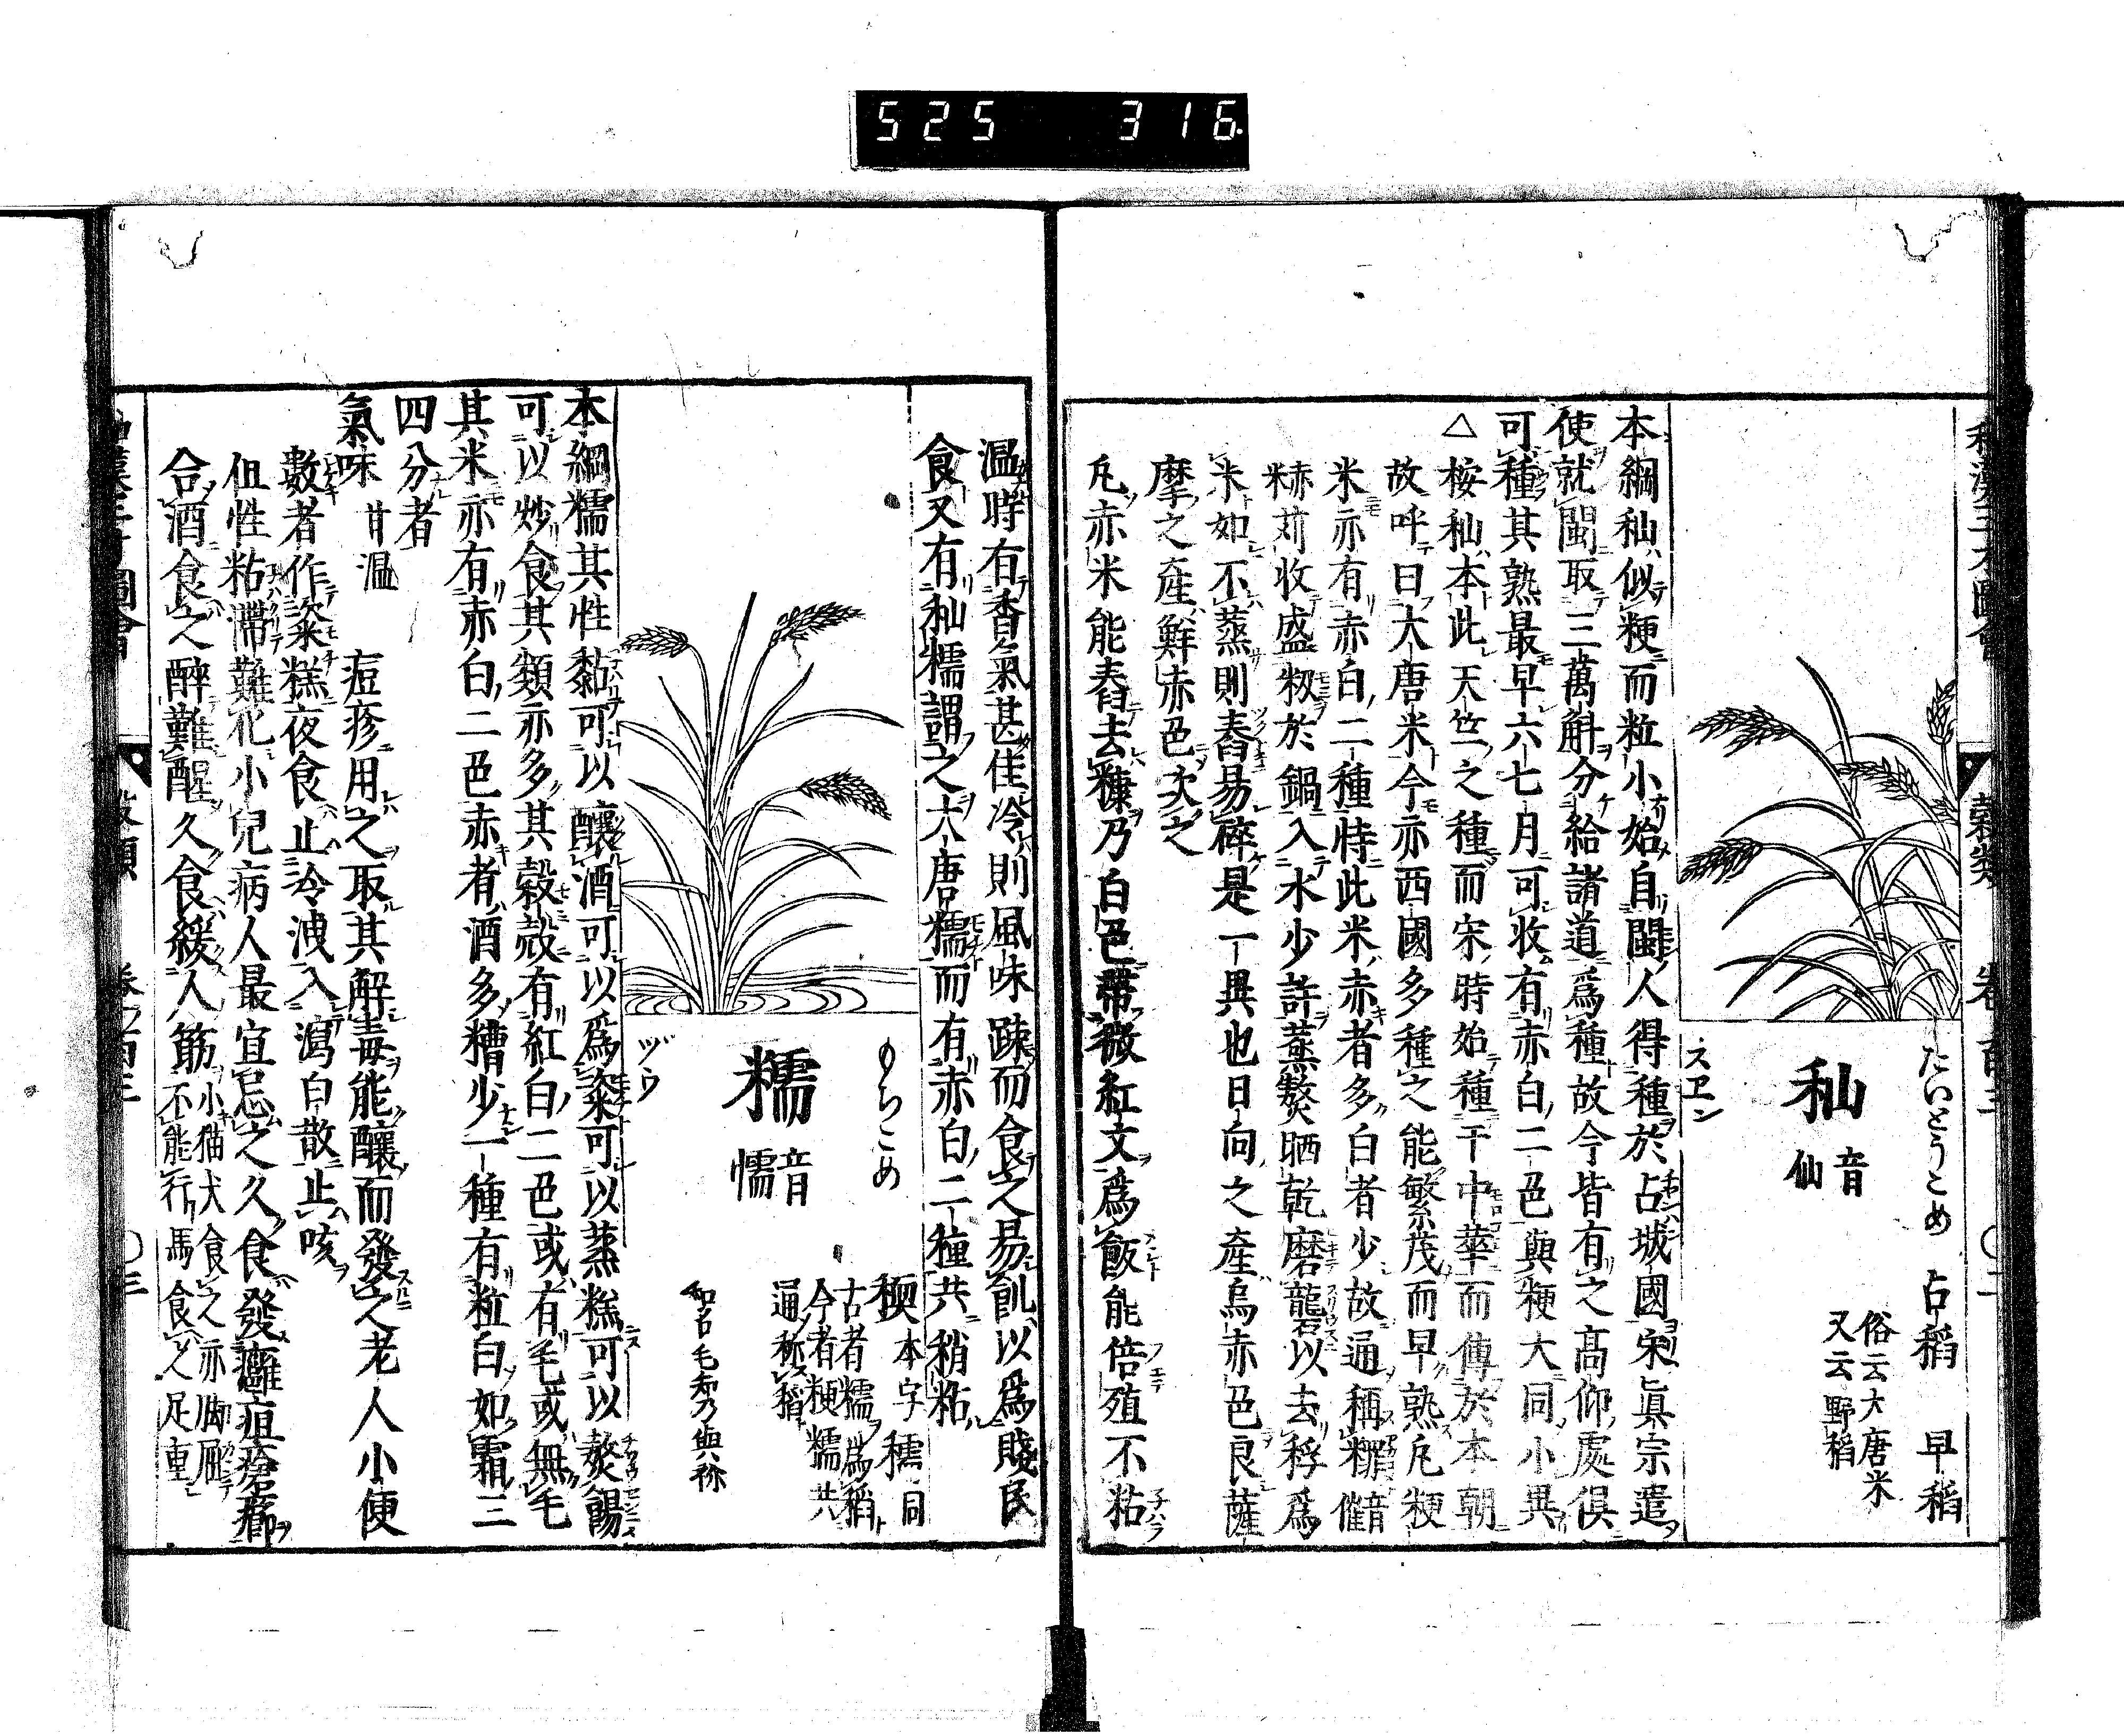 525 316
和漢三才圖會 穀類 卷百三 〇二
たいとうこめ 占稻 早稻
俗云大唐米
又云野稻
秈 音仙
スヱン
本綱秈似粳而粒小始自閩人得種於占城國宋眞宗遣
使就閩取三萬斛分給諸道爲種故今皆有之高仰處俱
可種其熟最早六七月可收有赤白二色與粳大同小異
△桉秈本此天竺之種而宋時始種于中華而傳於本朝
故呼曰大唐米今亦西國多種之能繁茂而早熟凡粳
米亦有赤白二種特此米赤者多白者少故通稱糶音催
赫苅收盛籾於鍋入水少許蒸熬晒乾磨礱以去稃爲
米如不蒸則舂易碎是一異也日向之產爲赤色良薩
摩之產鮮赤色次之
凡赤米能舂去糠乃白色帶微紅文爲飯能倍殖不粘
温時有香氣甚佳冷則風味疎而食之易飢以爲賤民
食又有秈糯謂之大唐糯而有赤白二種共稍粘
もちこめ 稬本字 穤同
古者糯爲稻
今者粳糯共
通称稻
糯 音懦
和名毛知乃與祢
ヅウ
本綱糯其性黏可以釀酒可以爲粢可以蒸糕可以熬餳
可以炒食其類亦多其穀殼有紅白二色或有毛或無毛
其米亦有赤白二色赤者酒多糟少一種有粒白如霜三
四分者
氣味 甘温 痘疹用之取其解毒能釀而發之老人小便
數者作粢糕夜食止冷洩入瀉白散止咳
但性粘滯難化小兒病人最宜忌之久食發癰疽瘡癤
合酒食之醉難醒久食緩人筋 小猫犬食之亦脚屈不能行馬食之足重
和漢三才圖會 穀類 卷之百三 〇三